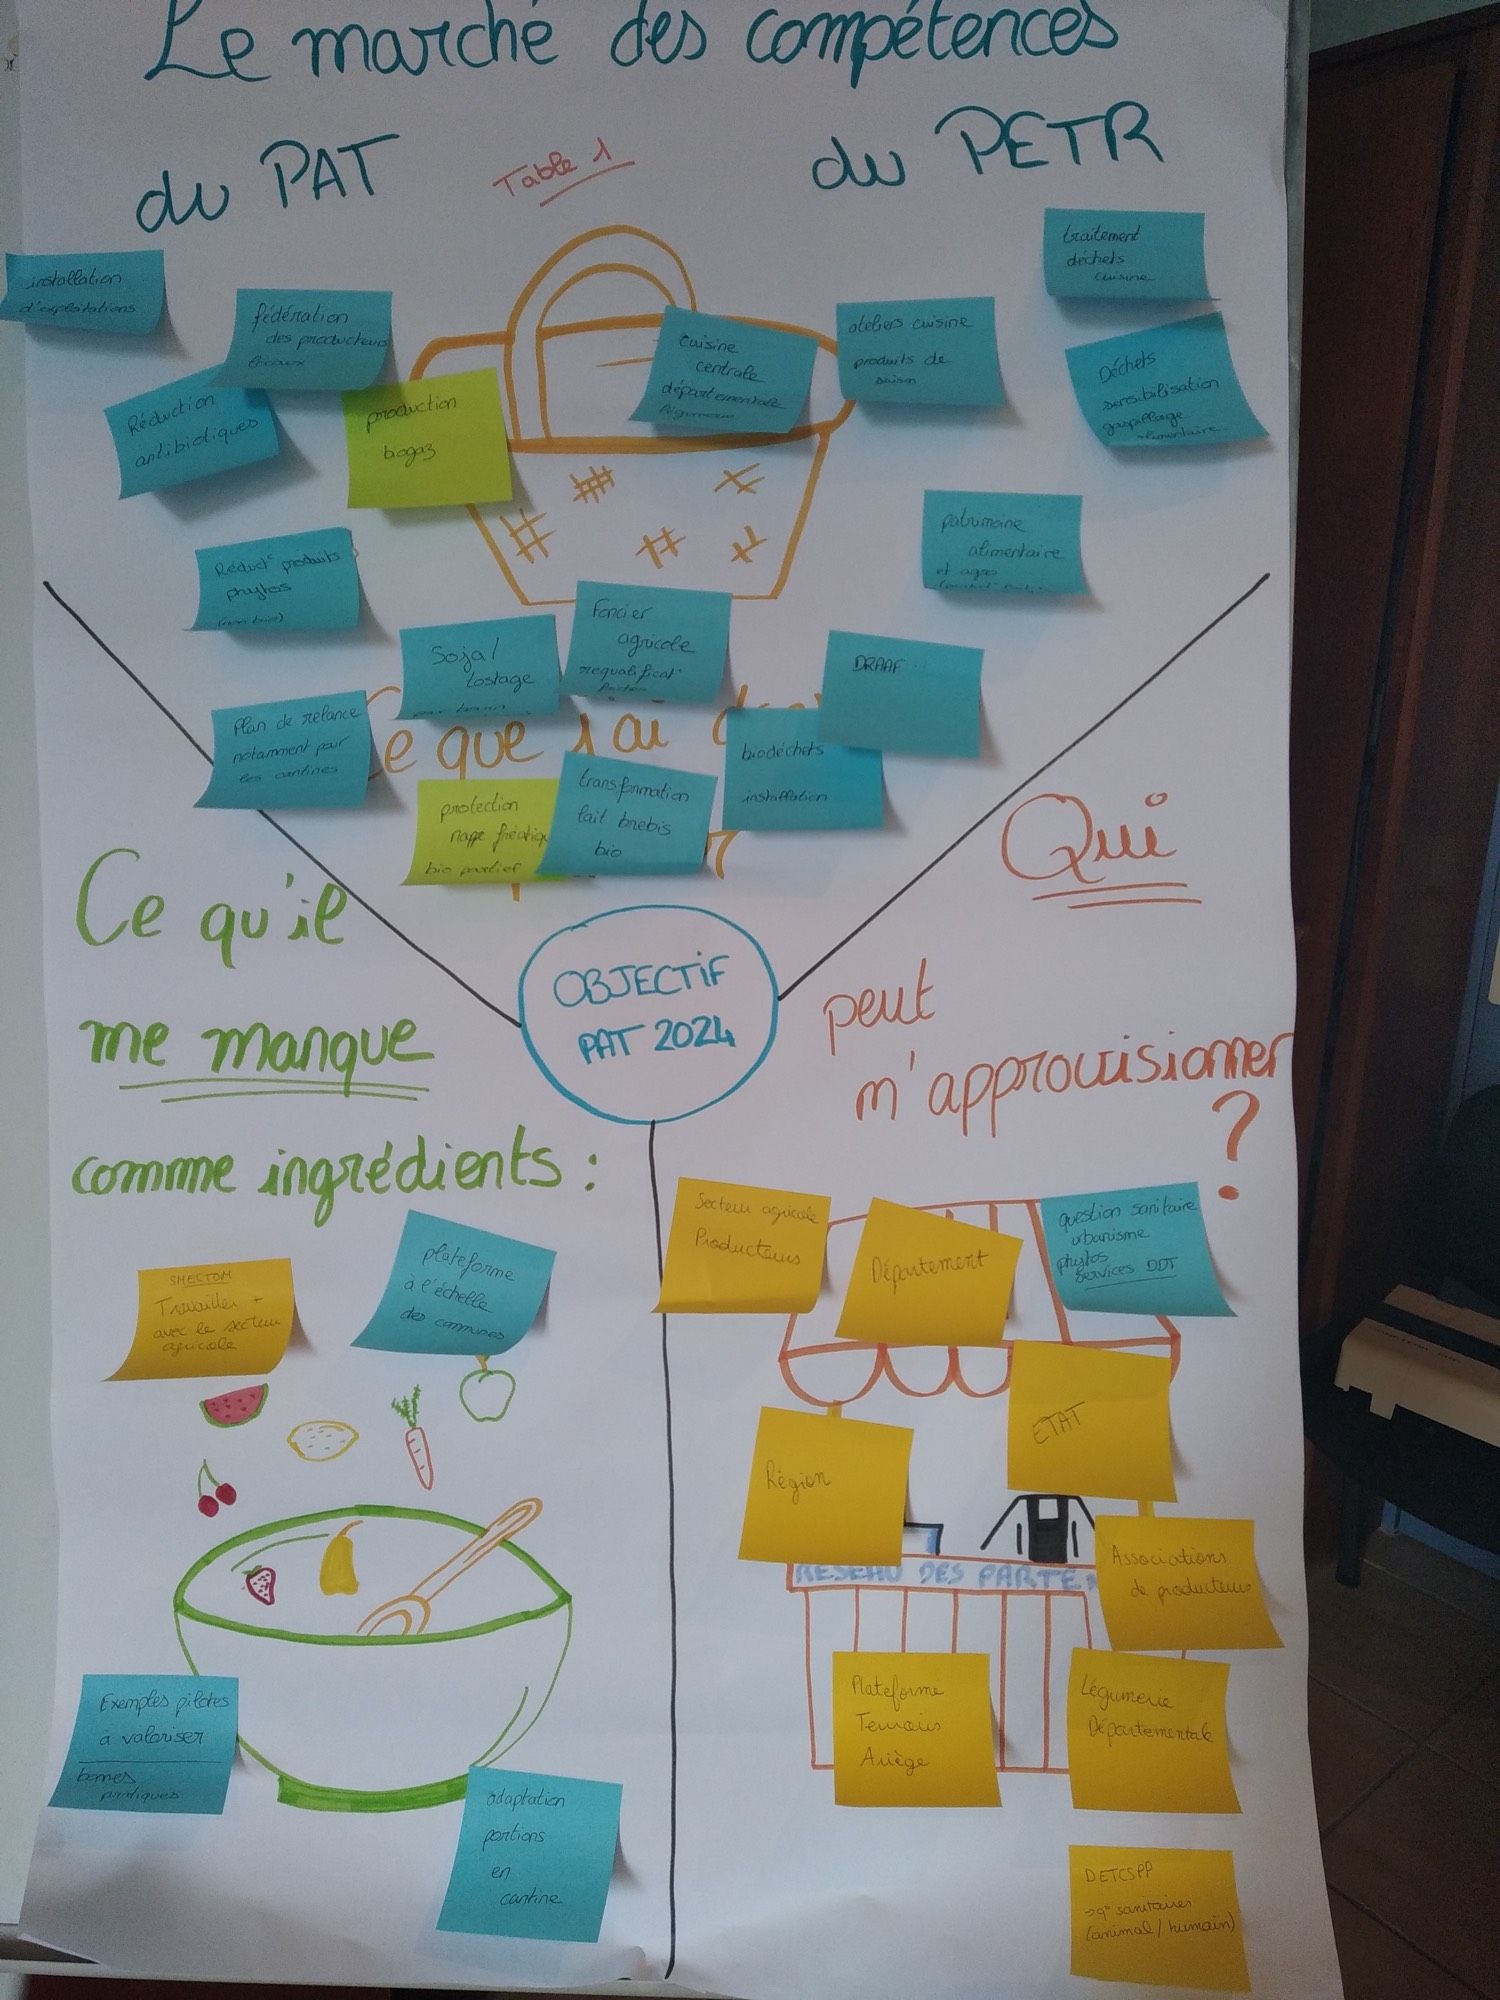 Le marché des compétences
du PAT
Table 1
du PETR
installation
d'exploitations
fédération
des producteurs
locaux
Réduction
antibiotiques
production
biogaz
cuisine
centrale
départementale
légumerie
ateliers cuisine
produits de
saison
traitement
déchets
cuisine
Déchets
sensibilisation
gaspillage
alimentaire
patrimoine
alimentaire
et agro
Réduct° produits
phytos
(non bio)
Soja/
tostage
Foncier
agricole
requalificat°
friches
DRAAF
Plan de relance
notamment pour
les cantines
Ce que j'ai
biodéchets
installation
protection
nappe phréatique
bio partiel
transformation
lait brebis
bio
OBJECTIF
PAT 2024
Ce qu'il
me manque
comme ingrédients :
SMECTOM
Travailler +
avec le secteur
agricole
plateforme
à l'échelle
des communes
Exemples pilotes
à valoriser
bonnes
pratiques
adaptation
portions
en
cantine
Qui
peut
m'approvisionner
?
Secteur agricole
Producteurs
Département
question sanitaire
urbanisme
phytos
services DDT
ETAT
Région
RESEAU DES PARTE
Associations
de producteurs
Plateforme
Terroirs
Ariège
Légumerie
Départementale
DETCSPP
→ q° sanitaires
(animal / humain)